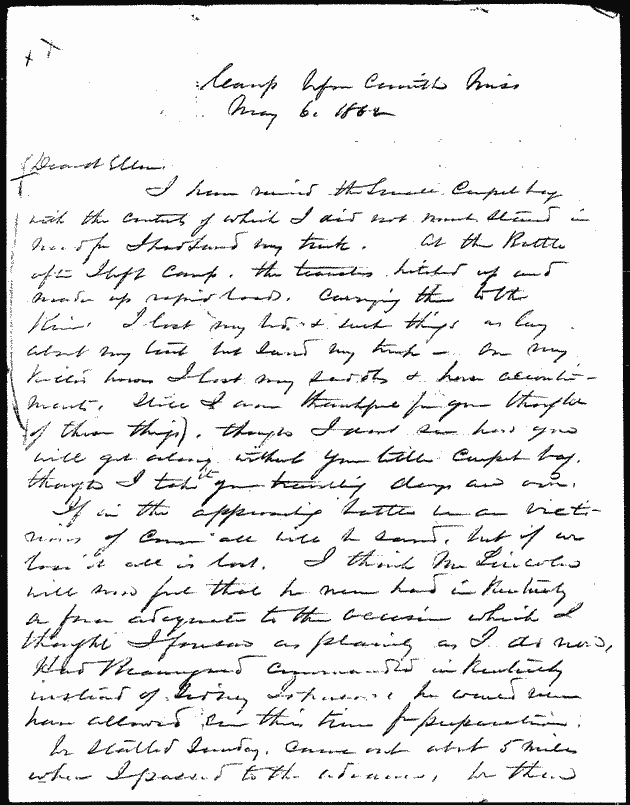 Camp before Corinth Miss
May 6. 1862
Dearest Ellen,
I have received the Small Carpet bag
with the contents of which I did not much stand in
need for I had saved my trunk. At the Battle
after I left Camp. the teamsters hitched up and
made up rapid loads. Carrying them to the
River I lost my bed & such things as lay
about my tent but saved my trunk - On my
killed horses I lost my saddle & horse accoutre-
ments. Still I am thankful for your thought
of these things, though I dont see how you
will get along without your little Carpet bag.
though I take it your travelling days are over.
If in the approaching battle we are victo-
rious of course all will be saved, but if we
lose it all is lost. I think Mr Lincoln
will now feel that he never had in Kentucky
a force adequate to the occasion which I
thought I foresaw as plainly as I do now,
Had Beauregard commanded in Kentucky
instead of Sidney Johnson, he would never
have allowed us this time for preparation.
We started Sunday, came out about 5 miles
when I passed to the advance, we then